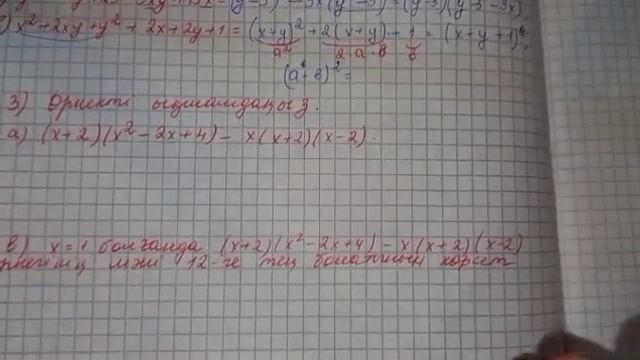 x²+2xy+y²+2x+2y+1=(x+y)²+2(x+y)+1=(x+y+1)²
a² 2·a·b b
(a+b)²=
3) Өрнекті ықшамдаңыз.
a) (x+2)(x²-2x+4)-x(x+2)(x-2).
b) x=1 болғанда (x+2)(x²-2x+4)-x(x+2)(x-2)
мәні 12-ге тең болатынын көрсет